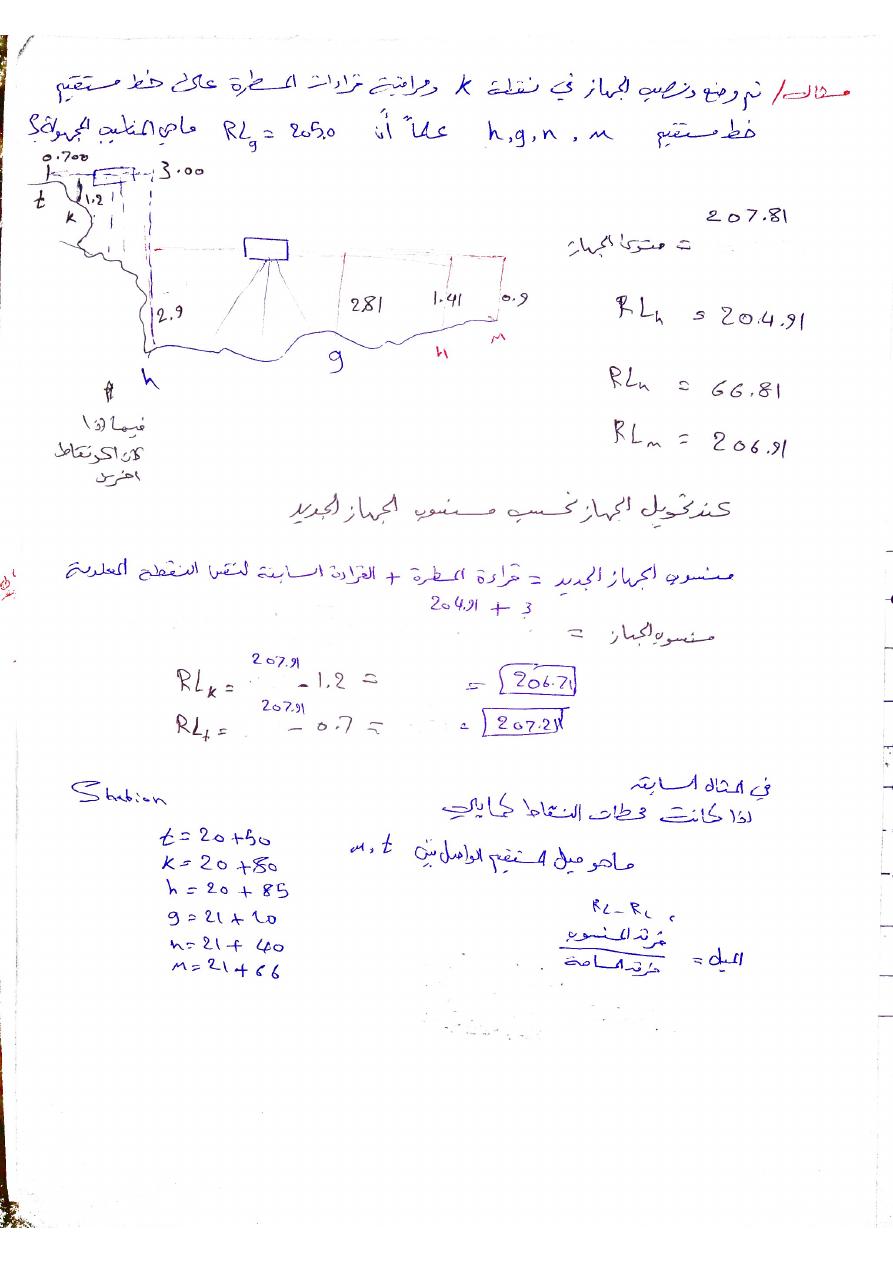 مثال/ تم وضع ونصب الجهاز في نقطة k ومراقبة قراءات المسطرة على خط مستقيم
خط مستقيم h,g,n,m علماً أن RLg = 205.0 ماهي المناسيب المجهولة؟
0.700
3.00
t
1.2
k
207.81
= مستوى الجهاز
2.9
281
1.41
0.9
RLh = 204.91
h
g
n
m
RLn = 66.81
RLm = 206.91
فيما اذا
اخرين
عند تحويل الجهاز نحسب منسوب الجهاز الجديد
منسوب الجهاز الجديد = قراءة المسطرة + القراءة السابقة لنفس النقطة
204.91 + 3
منسوب الجهاز =
RLk = 207.91 - 1.2 = = 206.71
RLt = 207.91 - 0.7 = = 207.21
في المثال السابق
Station
اذا كانت محطات النقاط كمايلي
t = 20+50
ماهو ميل المستقيم الواصل بين m, t
k = 20+80
h = 20+85
g = 21+20
n = 21+40
m = 21+66
RL - RL
الميل = فرق المنسوب
فرق المسافة